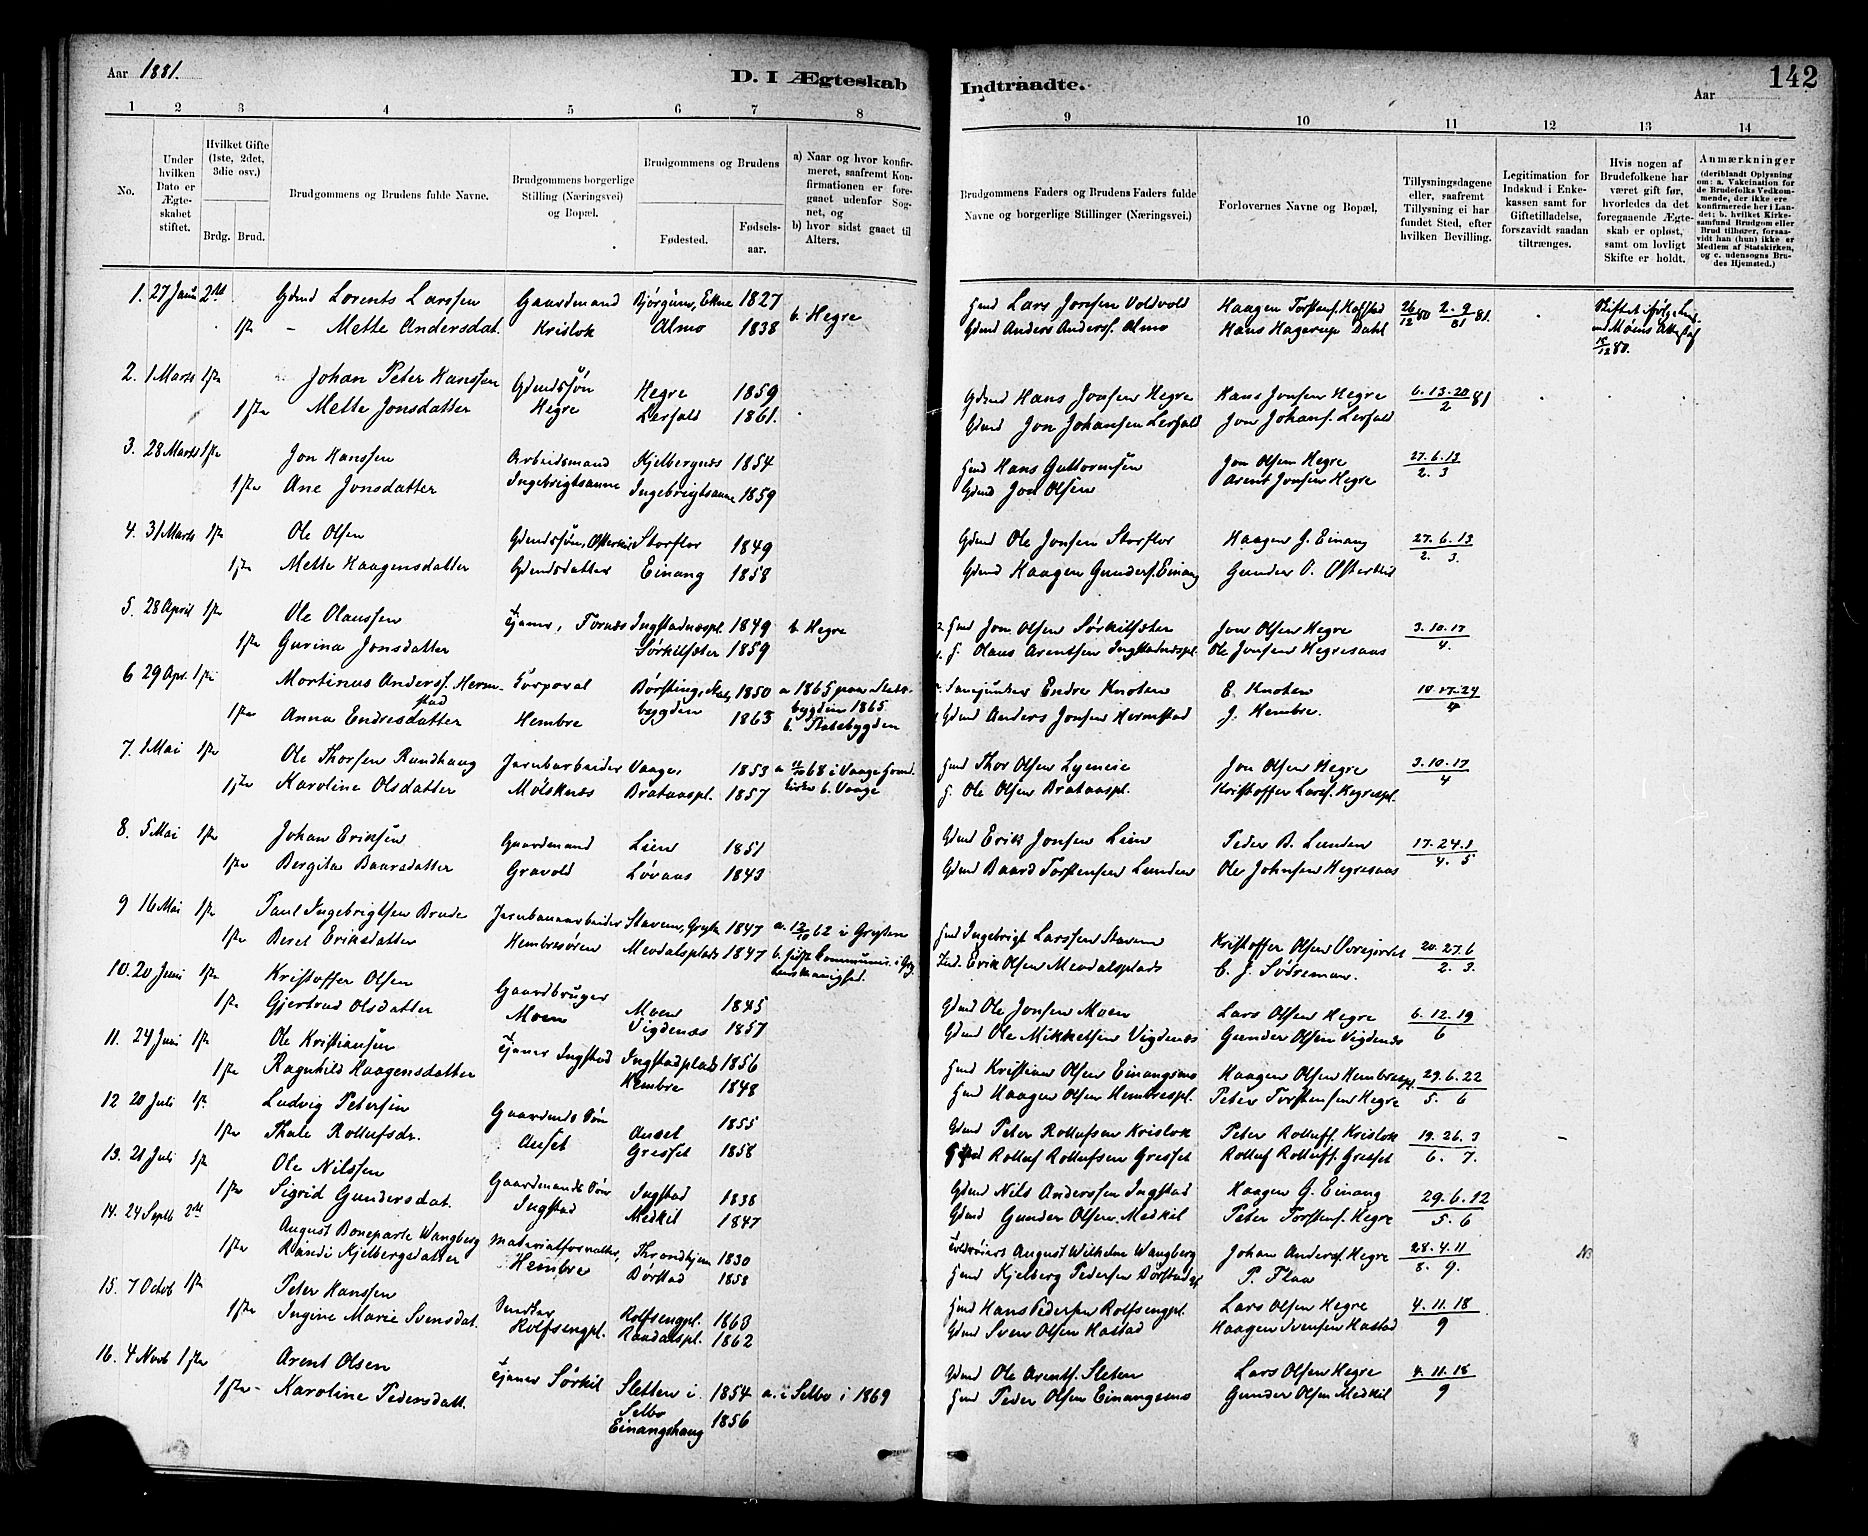 Aar 1881.
D. I Ægteskab Indtraadte.
Aar
142
1 2 3 4 5 6 7 8 9 10 11 12 13 14
No.
Under hvilken Dato er Ægteskabet stiftet.
Hvilket Gifte (1ste, 2det, 3die osv.)
Brdg. Brud.
Brudgommens og Brudens fulde Navne.
Brudgommens borgerlige Stilling (Næringsvei) og Bopæl.
Brudgommens og Brudens
Fødested.
Fødselsaar.
a) Naar og hvor konfirmeret, saafremt Konfirmationen er foregaaet udenfor Sognet, og
b) hvor sidst gaaet til Alters.
Brudgommens Faders og Brudens Faders fulde Navne og borgerlige Stillinger (Næringsvei.)
Forlovernes Navne og Bopæl,
Tillysningsdagene eller, saafremt Tillysning ei har fundet Sted, efter hvilken Bevilling.
Legitimation for Indskud i Enkekassen samt for Giftetilladelse, forszavidt saadan tiltrænges.
Hvis nogen af Brudefolkene har været gift før, hvorledes da det foregaaende Ægteskab er opløst, samt om lovligt Skifte er holdt.
Anmærkninger (deriblandt Oplysning om: a. Vakcination for de Brudefolks Vedkommende, der ikke ere konfirmerede her i Landet; b. hvilket Kirkesamfund Brudgom eller Brud tilhører, forsaavidt han (hun) ikke er Medlem af Statskirken, og c. udensogns Brudes Hjemsted.)
1. 27 Janu 2det Gdmd Lorents Larssen Gaardmand Bjørgum, Ekne 1827 b. Hegre Gmd Lars Jonsen Voldvold Haagen Torstens. Hofstad 26/12 80 2. 9/01 81.
1ste - Mette Andersdat. Krislok Almo 1838 Gdmd Anders Anders. Almo Hans Hagerup Dahl
2. 1 Marts 1ste Johan Peter Hanssen Gdmdssøn Hegre 1859 Gdmd Hans Jonsen Hegre Hans Jonsen Hegre 6.13.20/2 81
1ste Mette Jonsdatter Hegre Lerfald 1861. Gdmd Jon Johansen Lerfald Jon Johans. Lerfald
3. 28 Marts 1ste Jon Hanssen Arbeidsmand Kjelbergnæs 1854 Gmd Hans Guttormsen Jon Olsen Hegre 27.6.13
1ste Ane Jonsdatter Ingebrigtsaune Ingebrigtsaune 1859 Gdmd Jon Olsen Arent Jonsen Hegre 2. 3
4. 31 Marts 1ste Ole Olsen Gdmdssøn, Østerkil Storflor 1849 Gdmd Ole Jonsen Storflor Haagen J. Einang 27.6.13
1ste Mette Haagensdatter Gdmdsdatter Einang 1858 Gdmd Haagen Gunders. Einang Gunder O. Østerkil 2. 3.
5. 28 April 1ste Ole Olaussen Tjener, Fornæs Ingstadnæspl. 1849 b. Hegre 2. Gmd Jon Olsen Sørkilsæter Jon Olsen Hegre 3.10.17
1ste Gurina Jonsdatter Sørkilsæter 1859 1. G. Olaus Arentsen Ingstadnæspl. Ole Jonsen Hegresaas 4.
6 29 Apr. 1ste Mortinus Anderss. Hermstad Korporal Børsting, Statsbygden 1850 a 1865 paa Statsbygden 1865 Endre Knoten E. Knoten 10.17.24
1ste Anna Endresdatter Hembre 1863 b. Statsbygden Gdmd Anders Jonsen Hermstad J. Hembre. 4
7. 1 Mai 1ste Ole Thorsen Rundhaug Jernbarbeider Vaage, 1853 i Vaage Gmd Thor Olsen Jon Olsen Hegre 3.10.17
1ste Karoline Olsdatter Mølsknæs Brataaspl. 1857 b. Vaage G. Ole Olsen Brataaspl. Kristoffer Larss. Hegrespl. 4
8. 5 Mai 1ste Johan Eriksen Gaardmand Lien 1851 Gdmd Erik Jonsen Lien Peder B. Lunden 17.24.1
1ste Bergita Baarsdatter Gravold Løvaas 1843 Gdmd Baard Torstensen Lunden Ole Johnsen Hegresaas 4. 5
9 16 Mai 1ste Paul Ingebrigtsen Brude Jernbanearbeider Stavem, Grytn 1847 a. 12/10 62 i Grytten Gmd Ingebrigt Larssen Stavem Kristoffer Olsen Øvregjerdet 20.27.6
1ste Beret Eriksdatter Hembresøren Mevdalsplads 1847 Ind. Erik Olsen Mevdalsplads E. J. Sødreman. 2. 3.
10. 20 Juni 1ste Kristoffer Olsen Gaardbruger Moen 1845 Gdmd Ole Jonsen Moen Lars Olsen Hegre 6.12.19
1ste Gjertrud Olsdatter Moen Vigdenæs 1857 Gdmd Ole Mikkelsen Vigdenæs Gunder Olsen Vigdenæs 6
11. 24 Juni 1ste Ole Kristiansen Tjener Ingstad Ingstadplads 1856 Gmd Kristian Olsen Einangsmo Haagen Olsen Hembrespl. 29.6.22
1ste Ragnhild Haagensdatter Hembre 1848 Gmd Haagen Olsen Hembrespl. Peter Torstensen Hegre 5. 6
12 20 Juli 1st. Ludvig Petersen Gaardmds Søn Auset 1855 Gdmd Peter Rollufsen Krislok Peter Rolluff. Krislok 19.26.3
1ste Thale Rollufsdr. Auset Gresset 1858 Gdmd Rolluf Rollufsen Gresset Rolluf Rolluff. Gresset 6. 7.
13. 21 Juli 1ste Ole Nilssen Gaardmands Søn Ingstad 1838 Gdmd Nils Anderssen Ingstad Haagen G. Einang 29.6.12
1ste Sigrid Gundersdat. Ingstad Medkil 1847 Gdmd Gunder Olsen Medkil Peter Torstens. Hegre 5. 6
14. 24 Septb 2det August Boneparte Wangberg Materialforvalter, Throndhjem 1830 August Wilhelm Wangberg Johan Anders. Hegre 28.4.11
1ste Randi Kjelbergsdatter Hembre Børstad 1858 Gmd Kjelberg Pedersen Børstad P. Flaa 8. 9.
15. 7 Octob 1ste Peter Hanssen Rolfsengpl. 1863 Gmd Hans Pedersen Rolfsengpl. Lars Olsen Hegre 4.11.18
1ste Ingine Marie Svensdat. Rolfsengpl. Raadalspl. 1862 Gdmd Sven Olsen Hastad Haagen Svensen Hastad 9
16. 4 Novb 1ste Arent Olsen Tjener Sørkil Sletten i Selbo 1854 a. i Selbo i 1869 Gdmd Ole Arents. Sleten Lars Olsen Hegre 4.11.18
1ste - Karoline Pedersdatt. Einangshaug 1856 Gmd Peder Olsen Einangsmo Gunder Olsen Medkil 9